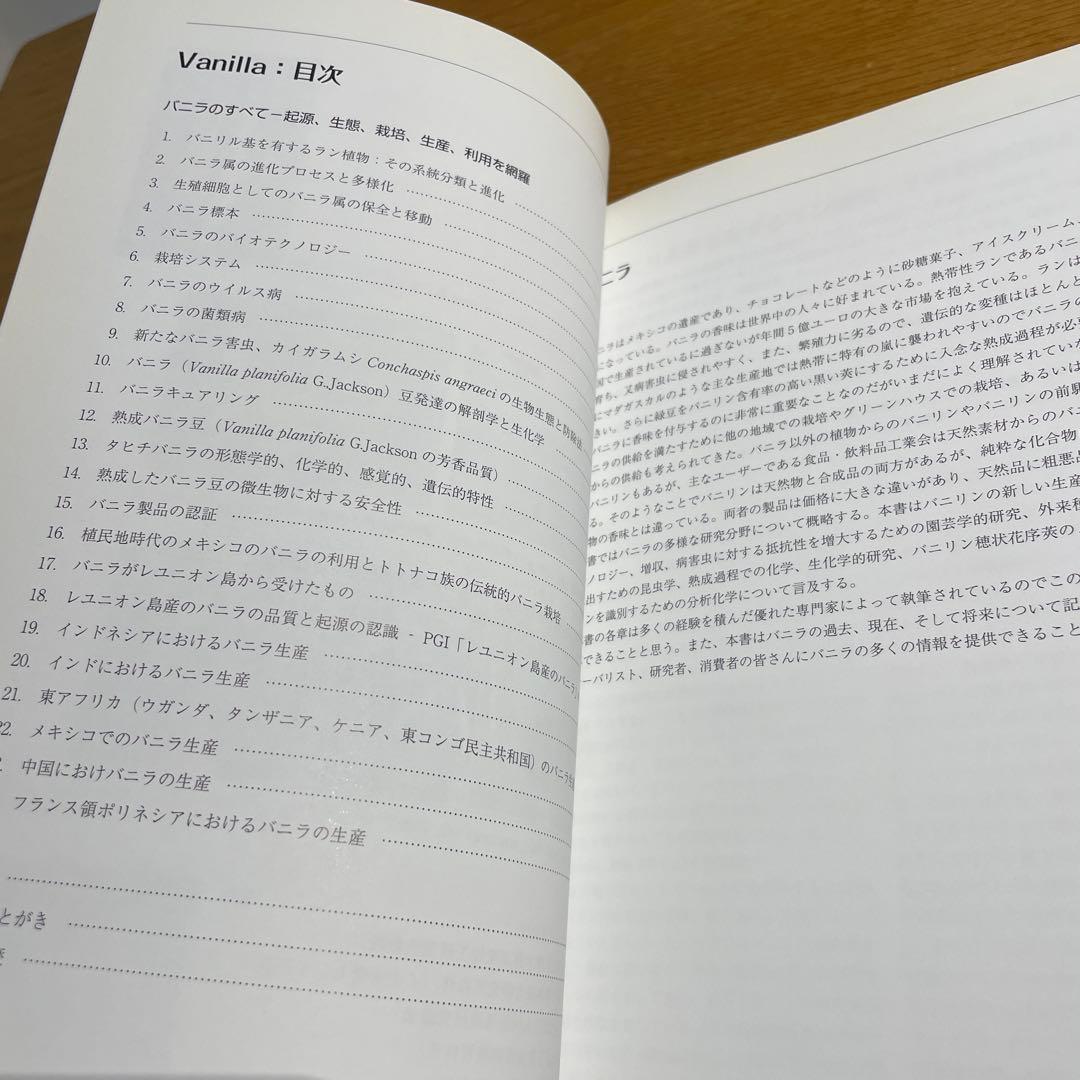 Vanilla：目次
バニラのすべて－起源、生態、栽培、生産、利用を網羅
1. バニリル基を有するラン植物：その系統分類と進化
2. バニラ属の進化プロセスと多様化
3. 生殖細胞としてのバニラ属の保全と移動
4. バニラ標本
5. バニラのバイオテクノロジー
6. 栽培システム
7. バニラのウイルス病
8. バニラの菌類病
9. 新たなバニラ害虫、カイガラムシ Conchaspis angraeci の生物生態と防除
10. バニラ（Vanilla planifolia G.Jackson）豆発達の解剖学と生化学
11. バニラキュアリング
12. 熟成バニラ豆（Vanilla planifolia G.Jackson の芳香品質）
13. タヒチバニラの形態学的、化学的、感覚的、遺伝的特性
14. 熟成したバニラ豆の微生物に対する安全性
15. バニラ製品の認証
16. 植民地時代のメキシコのバニラの利用とトトナコ族の伝統的バニラ栽培
17. バニラがレユニオン島から受けたもの
18. レユニオン島産のバニラの品質と起源の認識 - PGI「レユニオン島産のバニラ」
19. インドネシアにおけるバニラ生産
20. インドにおけるバニラ生産
21. 東アフリカ（ウガンダ、タンザニア、ケニア、東コンゴ民主共和国）のバニラ生
22. メキシコでのバニラ生産
中国におけバニラの生産
フランス領ポリネシアにおけるバニラの生産
とがき
ニラ
ニラはメキシコの遺産であり、チョコレートなどのように砂糖菓子、アイスクリーム
になっている。バニラの香味は世界中の人々に好まれている。熱帯性ランであるバニ
国で生産されているに過ぎないが年間５億ユーロの大きな市場を抱えている。ランは
育ち、又病害虫に侵されやすく、また、繁殖力に劣るので、遺伝的な変種はほとんど
にマダガスカルのような主な生産地では熱帯に特有の嵐に襲われやすいのでバニラの
きい。さらに緑豆をバニリン含有率の高い黒い莢にするために入念な熟成過程が必要
バニラに香味を付与するのに非常に重要なことなのだがいまだによく理解されていな
ニラの供給を満たすために他の地域での栽培やグリーンハウスでの栽培、あるいは
からの供給も考えられてきた。バニラ以外の植物からのバニリンやバニリンの前駆
バニリンもあるが、主なユーザーである食品・飲料品工業会は天然素材からのバニ
る。そのようなことでバニリンは天然物と合成品の両方があるが、純粋な化合物
物の香味とは違っている。両者の製品は価格に大きな違いがあり、天然品に粗悪
書ではバニラの多様な研究分野について概略する。本書はバニリンの新しい生産
ノロジー、増収、病害虫に対する抵抗性を増大するための園芸学的研究、外来種
出すための昆虫学、熟成過程での化学、生化学的研究、バニリン穂状花序莢の
ンを識別するための分析化学について言及する。
書の各章は多くの経験を積んだ優れた専門家によって執筆されているのでこの
できることと思う。また、本書はバニラの過去、現在、そして将来について記
ーバリスト、研究者、消費者の皆さんにバニラの多くの情報を提供できること